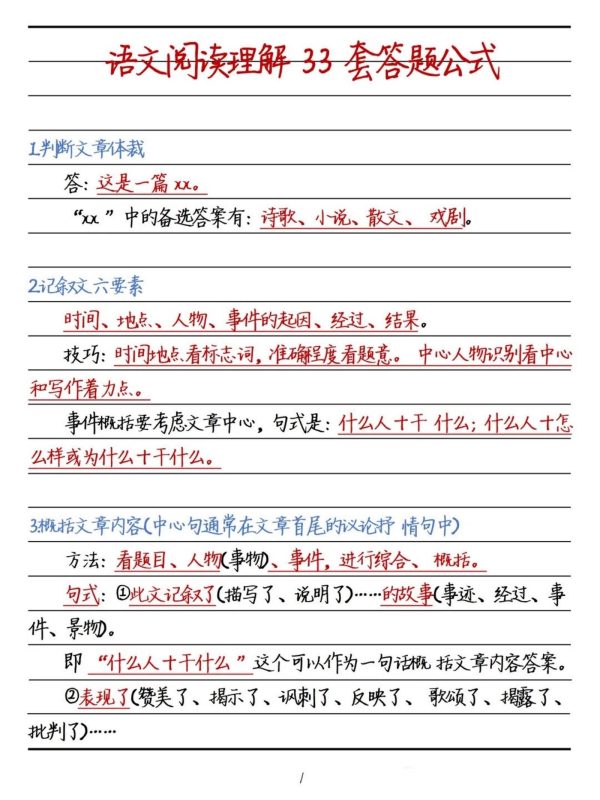 语文阅读理解 33 套答题公式
1.判断文章体裁
答：这是一篇 xx。
“xx ”中的备选答案有：诗歌、小说、散文、 戏剧。
2.记叙文六要素
时间、地点、人物、事件的起因、经过、结果。
技巧：时间地点看标志词，准确程度看题意。 中心人物识别看中心
和写作着力点。
事件概括要考虑文章中心，句式是：什么人十干 什么；什么人十怎
么样或为什么十干什么。
3.概括文章内容(中心句通常在文章首尾的议论抒 情句中)
方法：看题目、人物(事物)、事件，进行综合、 概括。
句式：①此文记叙了(描写了、说明了)……的故事(事迹、经过、事
件、景物)。
即 “什么人十干什么 ”这个可以作为一句话概 括文章内容答案。
②表现了(赞美了、揭示了、讽刺了、反映了、 歌颂了、揭露了、
批判了)……
/